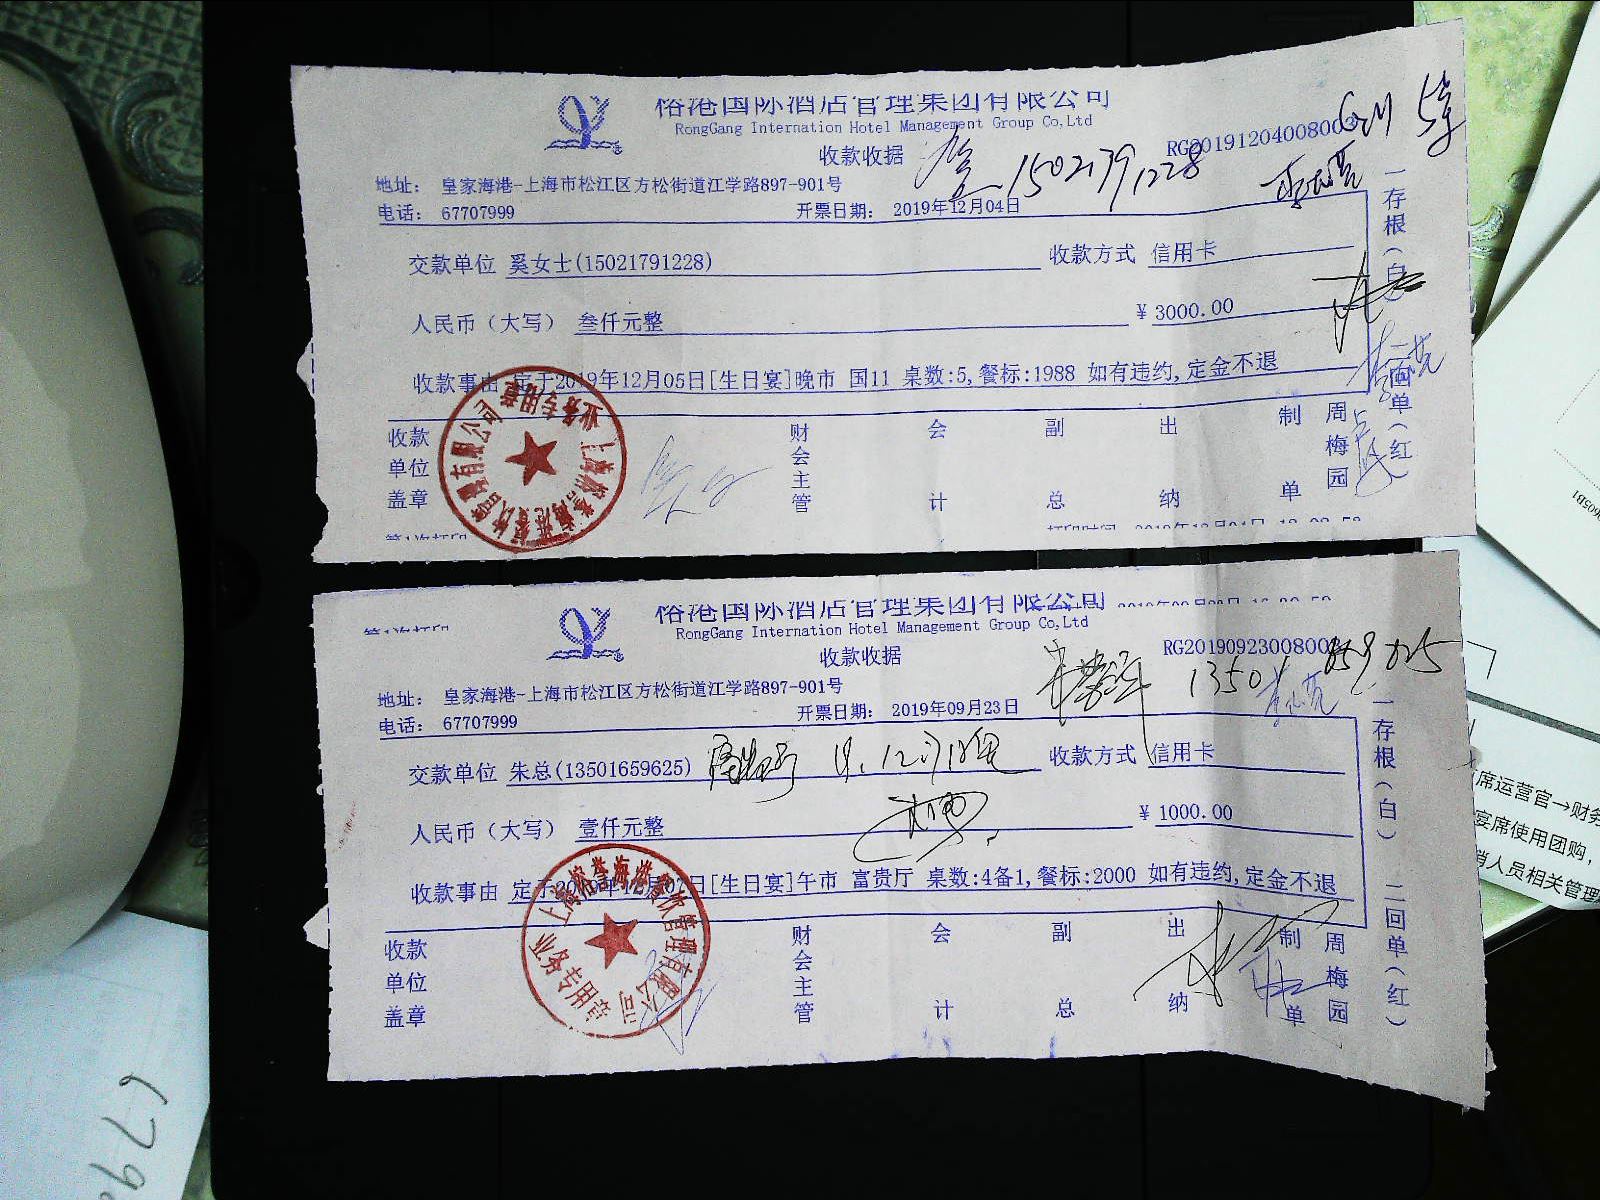 裕港国际酒店管理集团有限公司
RongGang Internation Hotel Management Group Co,Ltd
收款收据
RG20191204008003
15021791228
地址： 皇家海港-上海市松江区方松街道江学路897-901号
电话： 67707999 开票日期： 2019年12月04日
交款单位 奚女士(15021791228) 收款方式 信用卡
人民币（大写） 叁仟元整 ¥ 3000.00
收款事由 定于2019年12月05日[生日宴]晚市 国11 桌数:5,餐标:1988 如有违约,定金不退
收款单位盖章 财会主管 会计 副总 出纳 制单 周梅园
一存根（白） 二回单（红）
第1次打印
裕港国际酒店管理集团有限公司
RongGang Internation Hotel Management Group Co,Ltd
收款收据
地址： 皇家海港-上海市松江区方松街道江学路897-901号
电话： 67707999 开票日期： 2019年09月23日
交款单位 朱总(13501659625) 收款方式 信用卡
人民币（大写） 壹仟元整 ¥ 1000.00
收款事由 定于2019年12月07日[生日宴]午市 富贵厅 桌数:4备1,餐标:2000 如有违约,定金不退
收款单位盖章 财会主管 会计 副总 出纳 制单 周梅园
一存根（白） 二回单（红）
上海榕誉海港餐饮管理有限公司
业务专用章
席运营官→财务
宴席使用团购，
销人员相关管理